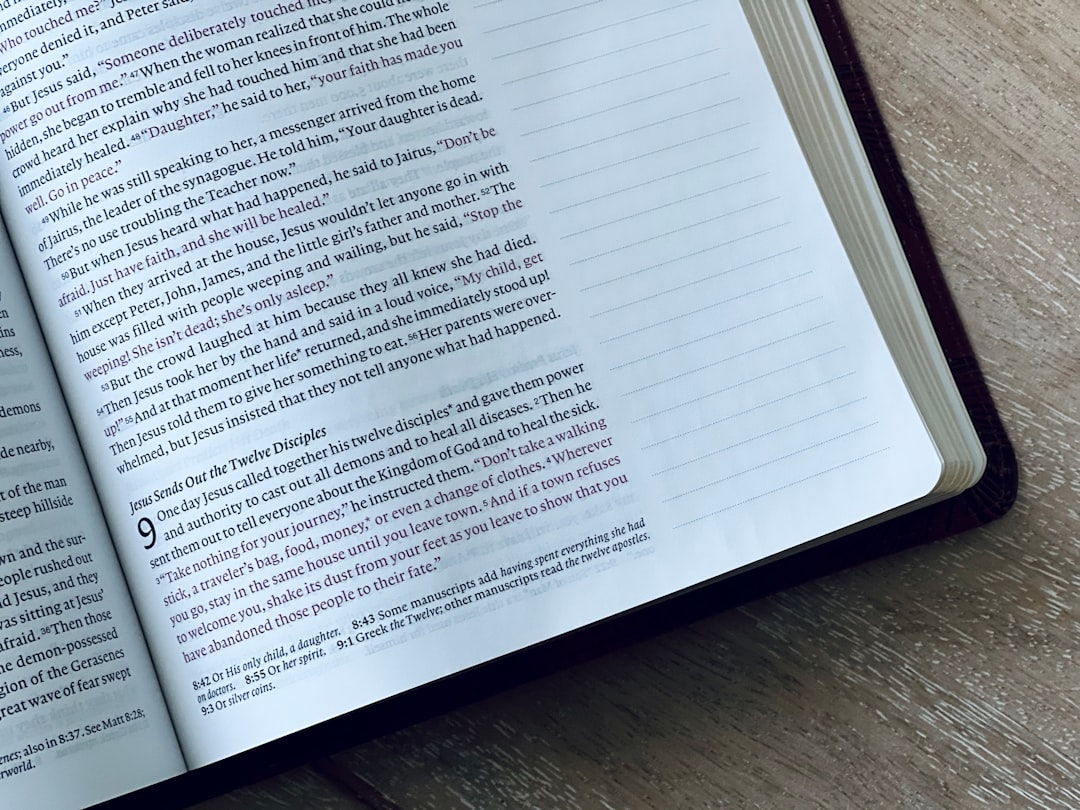 demons
de nearby,
t of the man
steep hillside
wn and the sur-
eople rushed out
d Jesus, and they
was sitting at Jesus'
afraid. 36 Then those
he demon-possessed
gion of the Gerasenes
great wave of fear swept
enes; also in 8:37. See Matt 8:28;
rworld.
mmediately,
Who touched me?"
everyone denied it, and Peter said,
against you."
46 But Jesus said, "Someone deliberately touched me,
power go out from me." 47 When the woman realized that she could
hidden, she began to tremble and fell to her knees in front of him. The whole
crowd heard her explain why she had touched him and that she had been
immediately healed. 48 "Daughter," he said to her, "your faith has made you
well. Go in peace."
49 While he was still speaking to her, a messenger arrived from the home
of Jairus, the leader of the synagogue. He told him, "Your daughter is dead.
There's no use troubling the Teacher now."
50 But when Jesus heard what had happened, he said to Jairus, "Don't be
afraid. Just have faith, and she will be healed."
51 When they arrived at the house, Jesus wouldn't let anyone go in with
him except Peter, John, James, and the little girl's father and mother. 52 The
house was filled with people weeping and wailing, but he said, "Stop the
weeping! She isn't dead; she's only asleep."
53 But the crowd laughed at him because they all knew she had died.
54 Then Jesus took her by the hand and said in a loud voice, "My child, get
up!" 55 And at that moment her life* returned, and she immediately stood up!
Then Jesus told them to give her something to eat. 56 Her parents were over-
whelmed, but Jesus insisted that they not tell anyone what had happened.
Jesus Sends Out the Twelve Disciples
9 One day Jesus called together his twelve disciples* and gave them power
and authority to cast out all demons and to heal all diseases. 2 Then he
sent them out to tell everyone about the Kingdom of God and to heal the sick.
3 "Take nothing for your journey," he instructed them. "Don't take a walking
stick, a traveler's bag, food, money,* or even a change of clothes. 4 Wherever
you go, stay in the same house until you leave town. 5 And if a town refuses
to welcome you, shake its dust from your feet as you leave to show that you
have abandoned those people to their fate."
8:42 Or His only child, a daughter. 8:43 Some manuscripts add having spent everything she had
on doctors. 8:55 Or her spirit. 9:1 Greek the Twelve; other manuscripts read the twelve apostles.
9:3 Or silver coins.